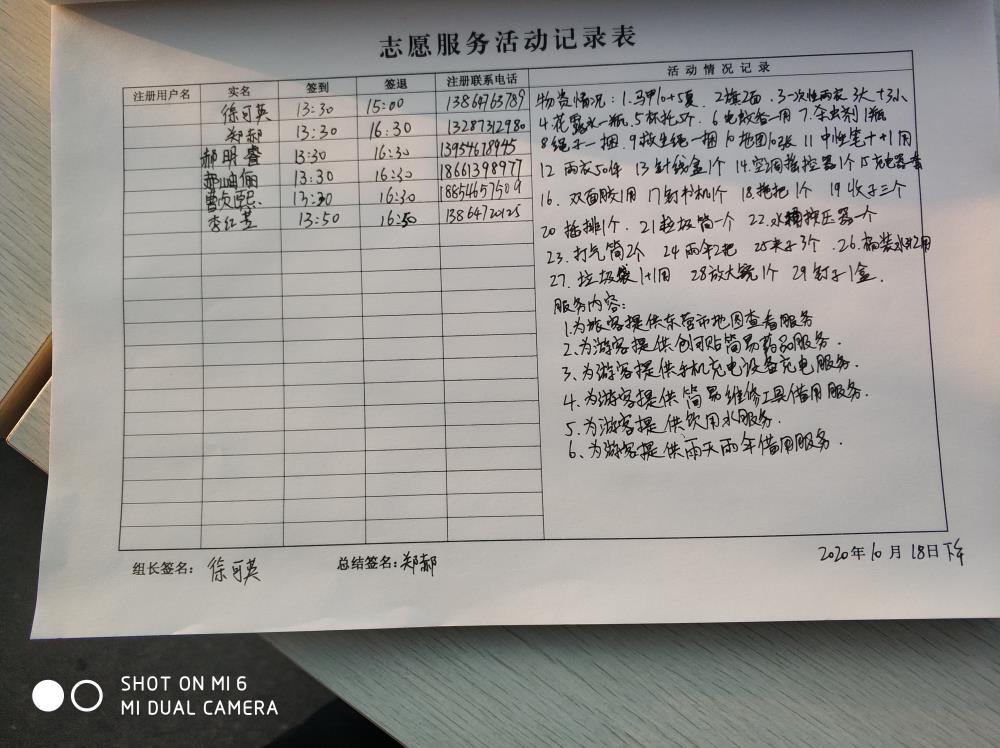 志愿服务活动记录表
注册用户名 实名 签到 签退 注册联系电话 活动情况记录
徐可英 13:30 15:00 13864763789
郑郝 13:30 16:30 13287312980
郝明睿 13:30 16:30 13954678945
郝 俪 13:30 16:30 18661398977
曹贞熙 13:30 16:30 18854657509
李红芸 13:50 16:50 13864720125
物资情况：1.马甲10+5夏 2旗2面 3一次性雨衣3大+3小
4花露水一瓶 5杯托5个 6电蚊香一用 7.杀虫剂1瓶
8绳子一捆 9救生绳一捆 10地图10张 11中性笔1+1用
12雨衣50件 13针线盒1个 14.空调摇控器1个 15充电器套
16.双面胶1用 17订书机1个 18拖把1个 19收子三个
20插排1个 21垃圾筒一个 22.水桶按压器一个
23.打气筒2个 24雨伞2把 25夹子3个 26.桶装水 用
27.垃圾袋1+1用 28放大镜1个 29钉子1盒.
服务内容：
1.为旅客提供东营市地图查看服务
2.为游客提供创可贴简易药品服务.
3、为游客提供手机充电设备充电服务.
4.为游客提供简易维修工具借用服务.
5.为游客提供饮用水服务.
6、为游客提供雨天雨伞借用服务.
组长签名：徐可英 总结签名：郑郝
2020年10月18日下午
SHOT ON MI 6
MI DUAL CAMERA